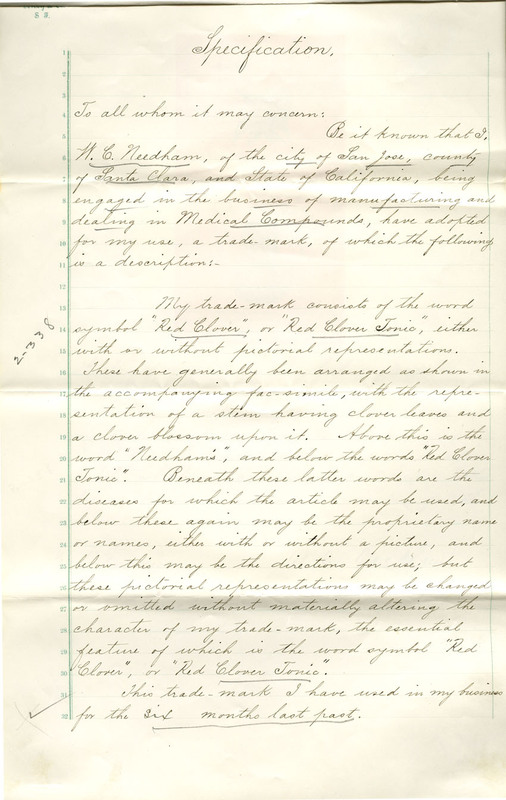 S 3.
Specification.
To all whom it may concern:
Be it known that I,
W. C. Needham, of the city of San Jose, county
of Santa Clara, and State of California, being
engaged in the business of manufacturing and
dealing in Medical Compounds, have adopted
for my use, a trade-mark, of which the following
is a description:-
My trade-mark consists of the word
symbol "Red Clover", or "Red Clover Tonic", either
with or without pictorial representations.
These have generally been arranged as shown in
the accompanying fac-simile, with the repre-
sentation of a stem having clover leaves and
a clover blossom upon it. Above this is the
word "Needham's", and below the words "Red Clover
Tonic". Beneath these latter words are the
diseases for which the article may be used, and
below these again may be the proprietary name
or names, either with or without a picture, and
below this may be the directions for use; but
these pictorial representations may be changed
or omitted without materially altering the
character of my trade-mark, the essential
feature of which is the word symbol "Red
Clover", or "Red Clover Tonic".
This trade-mark I have used in my business
for the six months last past.
2-338
1
2
3
4
5
6
7
8
9
10
11
12
13
14
15
16
17
18
19
20
21
22
23
24
25
26
27
28
29
30
31
32